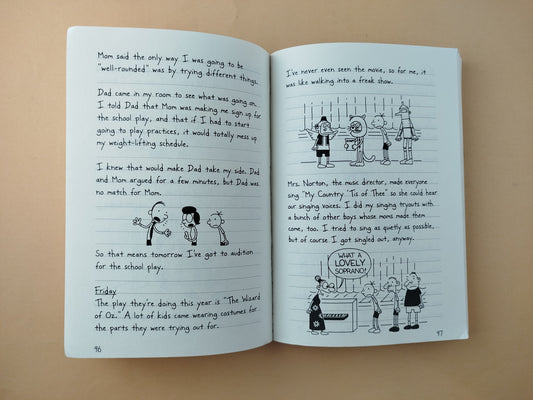 Mom said the only way I was going to be
"well-rounded" was by trying different things.
Dad came in my room to see what was going on.
I told Dad that Mom was making me sign up for
the school play, and that if I had to start
going to play practices, it would totally mess up
my weight-lifting schedule.
I knew that would make Dad take my side. Dad
and Mom argued for a few minutes, but Dad was
no match for Mom.
So that means tomorrow I've got to audition
for the school play.
Friday
The play they're doing this year is "The Wizard
of Oz." A lot of kids came wearing costumes for
the parts they were trying out for.
96
I've never even seen the movie, so for me, it
was like walking into a freak show.
Mrs. Norton, the music director, made everyone
sing "My Country 'Tis of Thee" so she could hear
our singing voices. I did my singing tryouts with
a bunch of other boys whose moms made them
come, too. I tried to sing as quietly as possible,
but of course I got singled out, anyway.
WHAT A
LOVELY
SOPRANO!
97